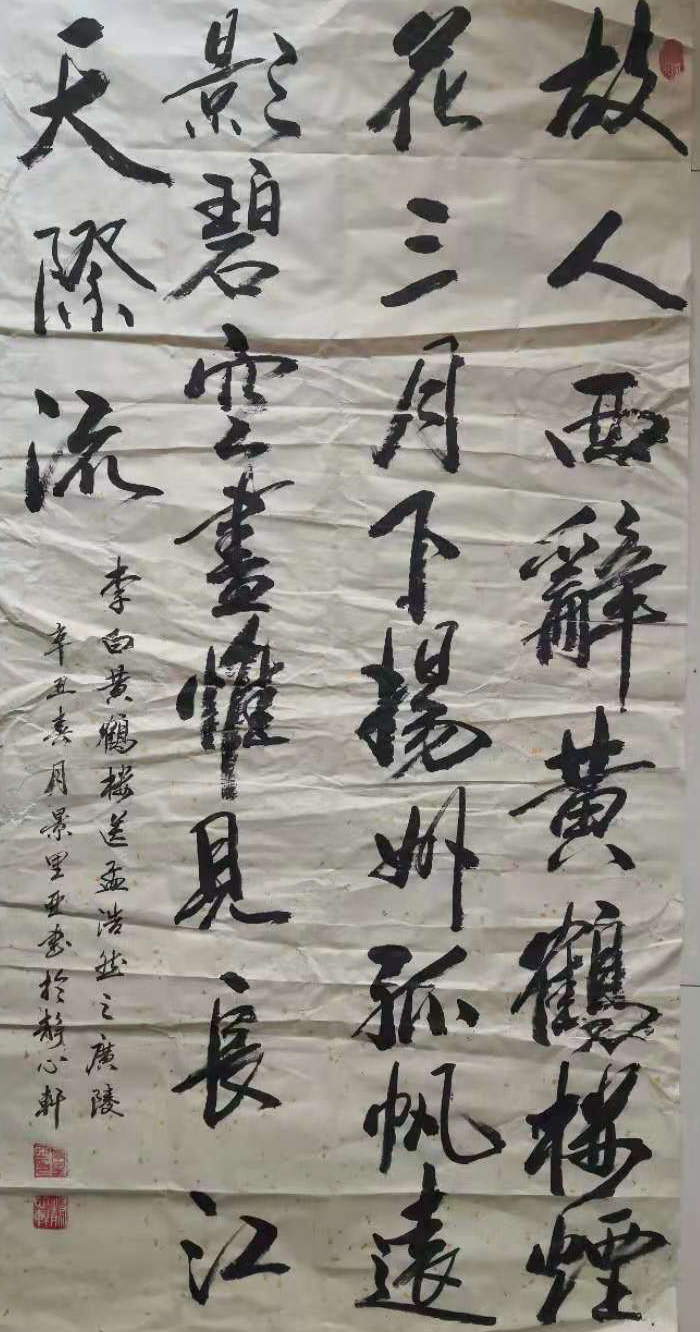 故人西辭黃鶴楼煙
花三月下揚州孤帆遠
影碧空盡惟見長江
天際流
李白黄鶴楼送孟浩然之廣陵
辛丑春月景里亚书於静心軒